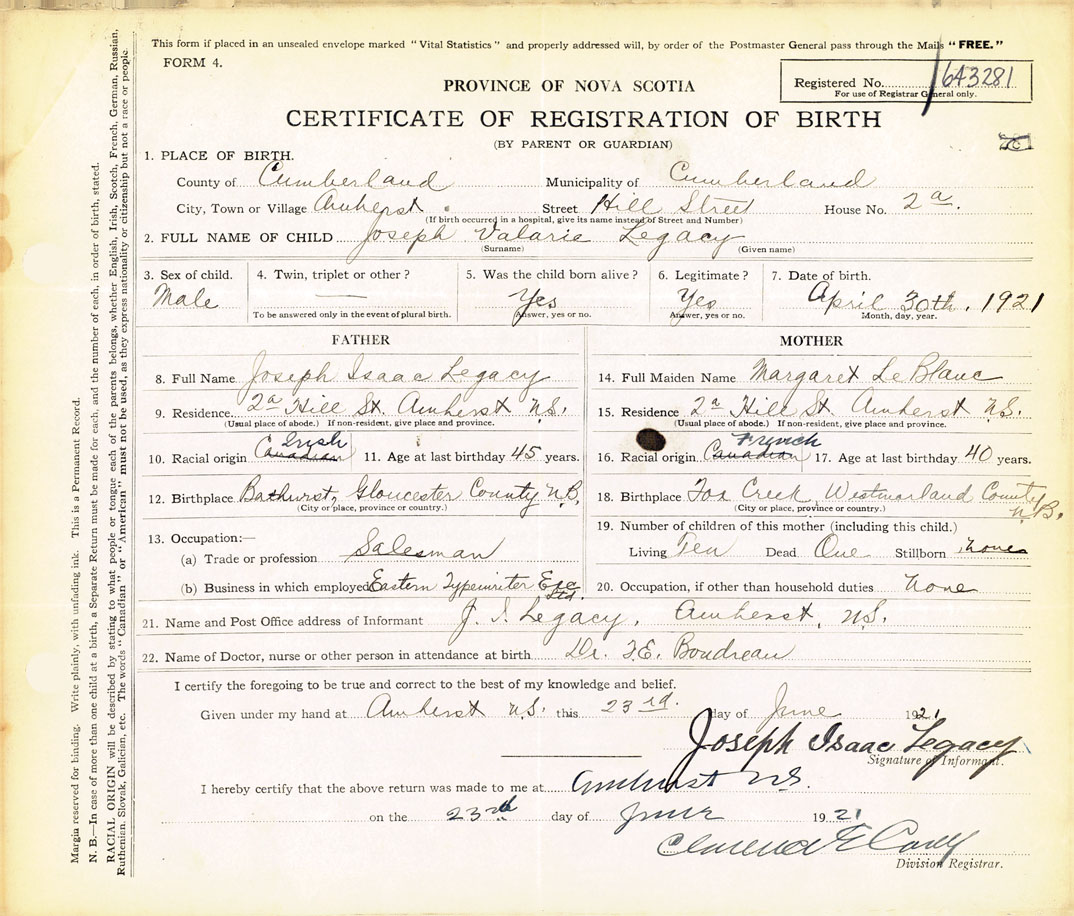 This form if placed in an unsealed envelope marked "Vital Statistics" and properly addressed will, by order of the Postmaster General pass through the Mails "FREE."
FORM 4.
PROVINCE OF NOVA SCOTIA
Registered No. 643281
For use of Registrar General only.
CERTIFICATE OF REGISTRATION OF BIRTH
(BY PARENT OR GUARDIAN)
1. PLACE OF BIRTH.
County of Cumberland Municipality of Cumberland
City, Town or Village Amherst Street Hill Street House No. 2a.
(If birth occurred in a hospital, give its name instead of Street and Number)
2. FULL NAME OF CHILD Joseph Valarie Legacy
(Surname) (Given name)
3. Sex of child. 4. Twin, triplet or other? 5. Was the child born alive? 6. Legitimate? 7. Date of birth.
Male — Yes Yes April 30th, 1921
To be answered only in the event of plural birth. Answer, yes or no. Answer, yes or no. Month, day, year.
FATHER
8. Full Name Joseph Isaac Legacy
9. Residence 2a Hill St. Amherst N.S.
(Usual place of abode.) If non-resident, give place and province.
Irish
10. Racial origin Canadian 11. Age at last birthday 45 years.
12. Birthplace Bathurst, Gloucester County N.B.
(City or place, province or country.)
13. Occupation:—
(a) Trade or profession Salesman
(b) Business in which employed Eastern Typewriter Exc Ltd.
MOTHER
14. Full Maiden Name Margaret LeBlanc
15. Residence 2a Hill St. Amherst N.S.
(Usual place of abode.) If non-resident, give place and province.
French
16. Racial origin Canadian 17. Age at last birthday 40 years.
18. Birthplace Fox Creek, Westmorland County N.B.
(City or place, province or country.)
19. Number of children of this mother (including this child.)
Living Ten Dead One Stillborn none
20. Occupation, if other than household duties None
21. Name and Post Office address of Informant J. I. Legacy, Amherst, N.S.
22. Name of Doctor, nurse or other person in attendance at birth Dr. F.E. Boudreau
I certify the foregoing to be true and correct to the best of my knowledge and belief.
Given under my hand at Amherst N.S. this 23rd. day of June 1921
Joseph Isaac Legacy
Signature of Informant.
I hereby certify that the above return was made to me at Amherst N.S.
on the 23rd day of June 1921
Clarence E
Division Registrar.
Margin reserved for binding. Write plainly, with unfading ink. This is a Permanent Record.
N. B.—In case of more than one child at a birth, a Separate Return must be made for each, and the number of each, in order of birth, stated.
RACIAL ORIGIN will be described by stating to what people or tongue each of the parents belongs, whether English, Irish, Scotch, French, German, Russian,
Ruthenian, Slovak, Galician, etc. The words "Canadian" or "American" must not be used, as they express nationality or citizenship but not a race or people.